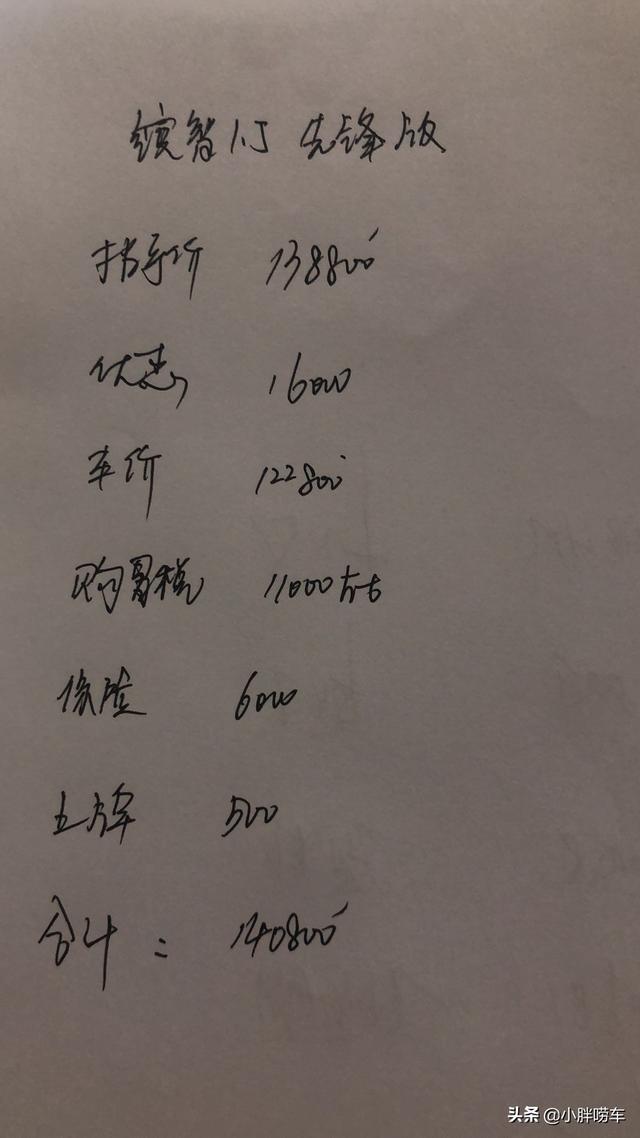 缤智1.5 先锋版
指导价 138800
优惠 16000
车价 122800
购置税 11000左右
保险 6000
上牌 500
合计: 140800
头条 @小胖唠车